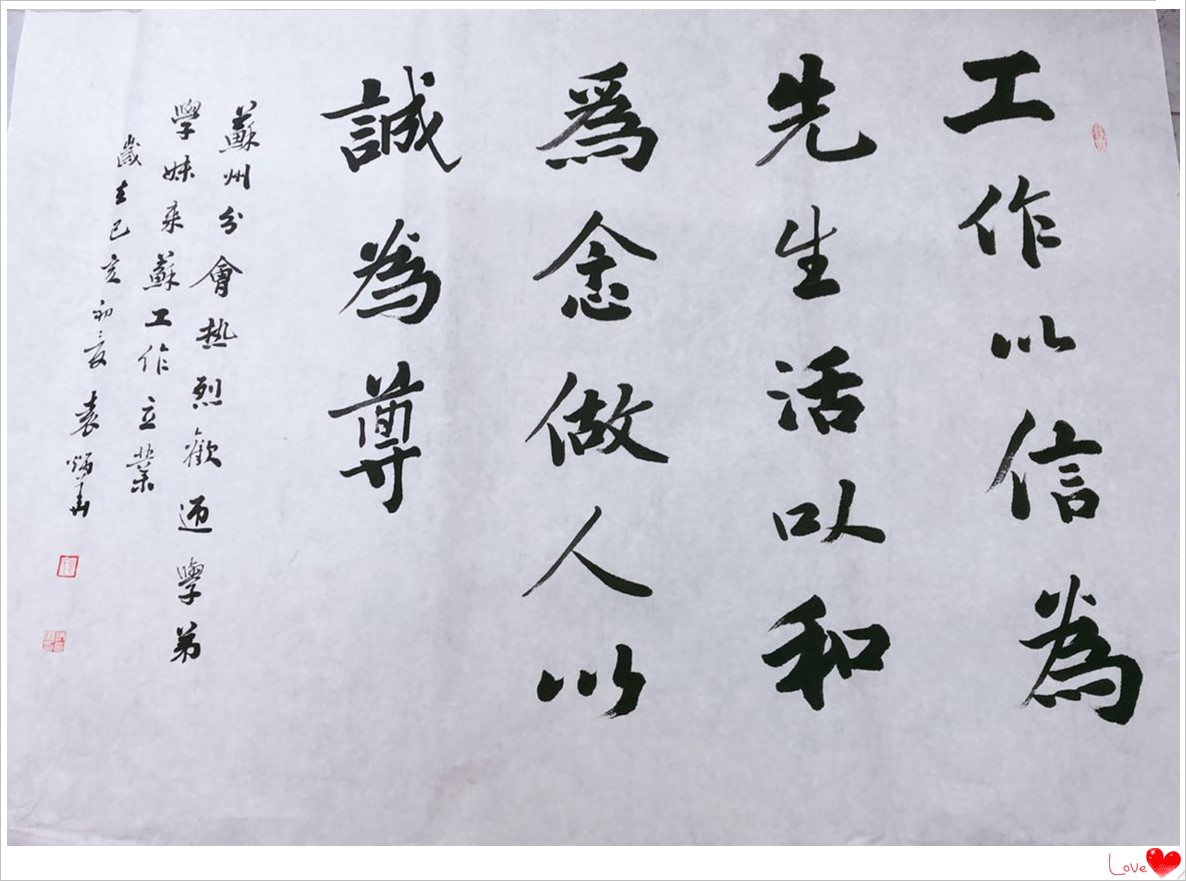 工作以信為
先生活以和
爲念做人以
誠為尊
蘇州分會热烈歡迊學弟
學妹来蘇工作立業
歲在己亥初夏袁炳
Love